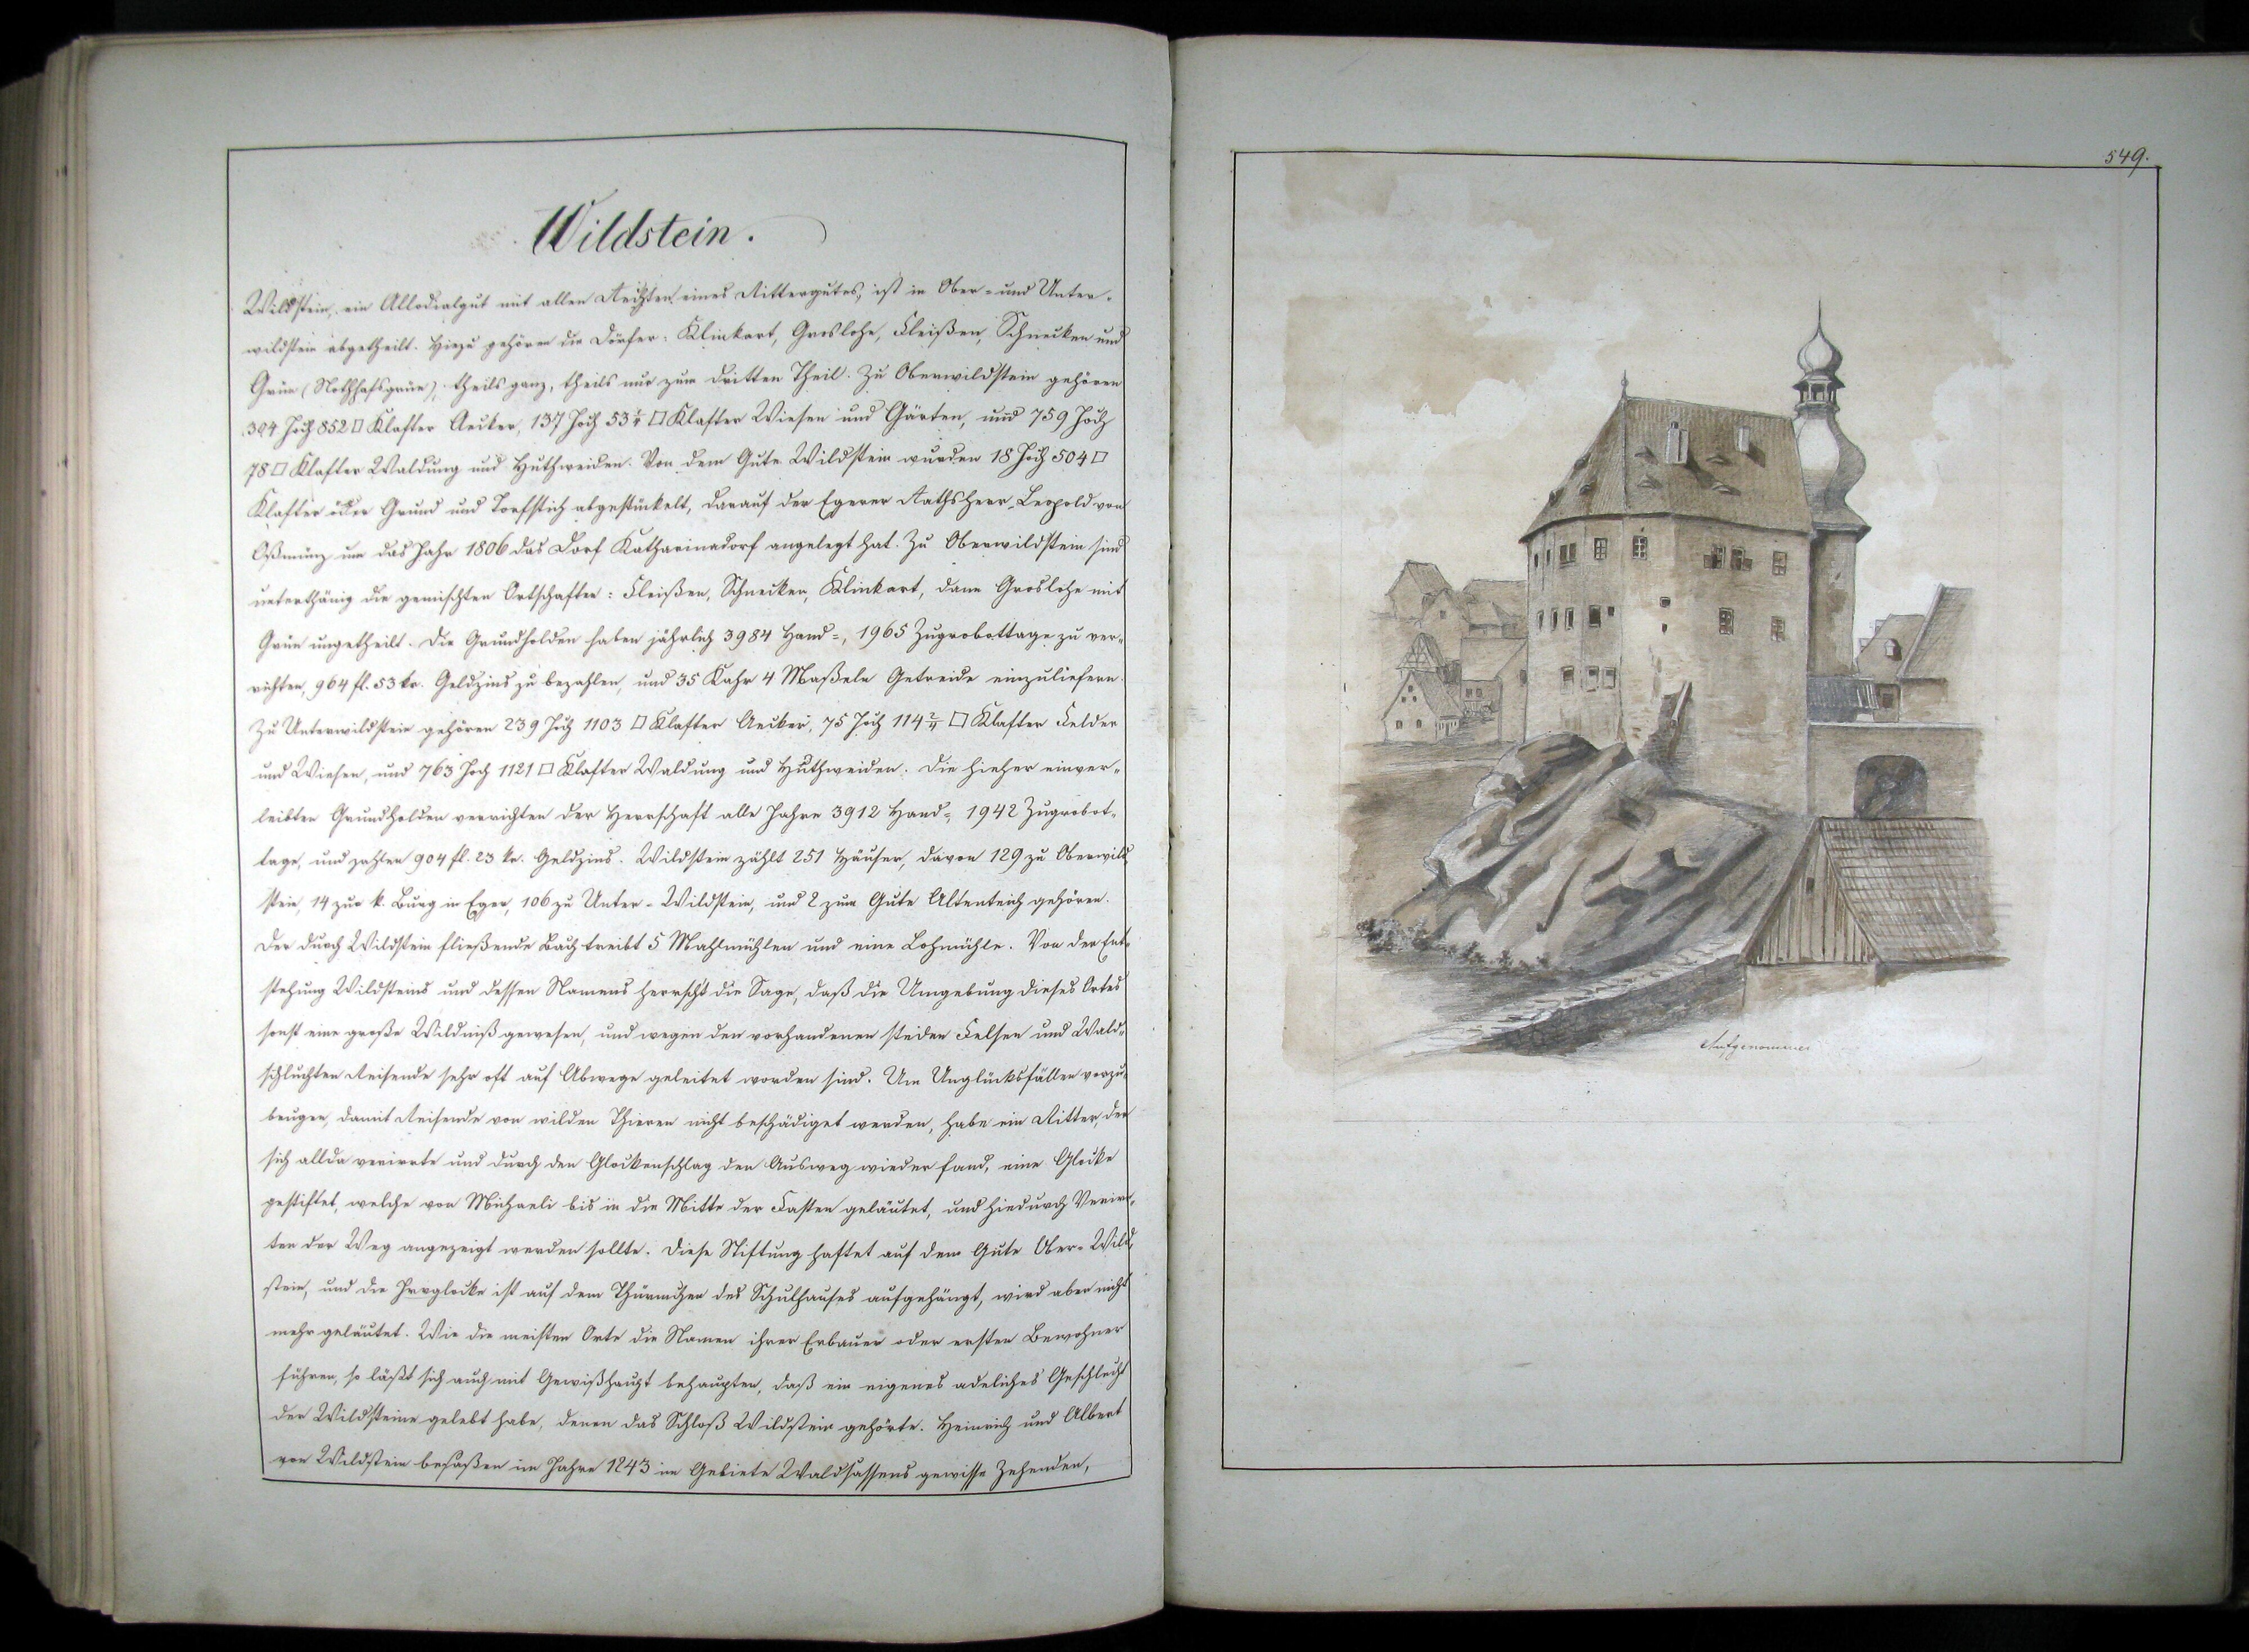 Wildstein.
Wildstein, ein Allodialgut mit allen Rechten eines Rittergutes, ist in Ober- und Unter-
wildstein abgetheilt. Hiezu gehören die Dörfer: Klinkart, Groslohe, Fleißen, Schnecken und
Grün (Nothhaftsgrün), theils ganz, theils nur zum dritten Theil. Zu Oberwildstein gehören
304 Joch 852 □ Klafter Aecker, 137 Joch 53 □ Klafter Wiesen und Gärten, und 759 Joch
78 □ Klafter Waldung und Huthweiden. Von dem Gute Wildstein wurden 18 Joch 504 □
Klafter öder Grund und Torfstich abgestückelt, darauf der Egerer Rathsherr Leopold von
Oßmünz um das Jahr 1806 das Dorf Katharinadorf angelegt hat. Zu Oberwildstein sind
unterthänig die gemischten Ortschaften: Fleißen, Schnecken, Klinkart, dann Groslohe mit
Grün ungetheilt. Die Grundholden haben jährlich 3984 Hand-, 1965 Zugrobottage zu ver-
richten, 964 fl. 53 kr. Geldzins zu bezahlen, und 35 Kahr 4 Maßeln Getreide einzuliefern.
Zu Unterwildstein gehören 239 Joch 1103 □ Klafter Aecker, 75 Joch 114 2/4 □ Klafter Felder
und Wiesen, und 763 Joch 1121 □ Klafter Waldung und Huthweiden. Die hieher einver-
leibten Grundholden verrichten der Herrschaft alle Jahre 3912 Hand-, 1942 Zugrobot-
tage, und zahlen 904 fl. 23 kr. Geldzins. Wildstein zählt 251 Häuser, davon 129 zu Oberwild
stein, 14 zur k. Burg in Eger, 106 zu Unter-Wildstein, und 2 zum Gute Altenteich gehören.
Der durch Wildstein fließende Bach treibt 5 Mahlmühlen und eine Lohmühle. Von der Ent-
stehung Wildsteins und dessen Namens herrscht die Sage, daß die Umgebung dieses Ortes
sonst eine große Wildniß gewesen, und wegen den vorhandenen steilen Felsen und Wald-
schluchten Reisende sehr oft auf Abwege geleitet worden sind. Um Unglücksfällen vorzu-
beugen, damit Reisende von wilden Thieren nicht beschädiget werden, habe ein Ritter, der
sich allda verirrte und durch den Glockenschlag den Ausweg wieder fand, eine Glocke
gestiftet, welche von Michaeli bis in die Mitte der Fasten geläutet, und hiedurch Verirr-
ten der Weg angezeigt werden sollte. Diese Stiftung haftet auf dem Gute Ober-Wild
stein, und die Irrglocke ist auf dem Thürmchen des Schulhauses aufgehängt, wird aber nicht
mehr geläutet. Wie die meisten Orte die Namen ihrer Erbauer oder ersten Bewohner
führen, so läßt sich auch mit Gewißheit behaupten, daß ein eigenes adeliches Geschlecht
der Wildsteine gelebt habe, denen das Schloß Wildstein gehörte. Heinrich und Albert
von Wildstein besaßen im Jahre 1243 im Gebiete Waldsassens gewisse Zehenden,
549.
Aufgenommen